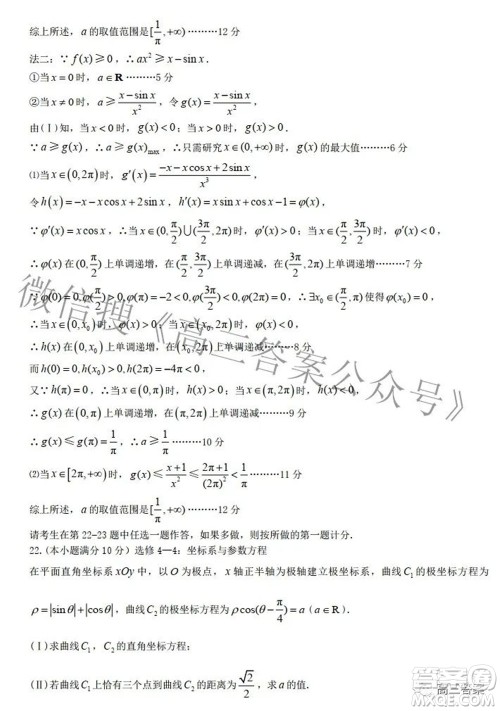 综上所述，a的取值范围是[1/π,+∞)………12分
法二：∵ f(x)≥0，∴ax²≥x-sinx．
①当x=0时，a∈R………5分
②当x≠0时，a≥(x-sinx)/x²，令g(x)=(x-sinx)/x²，
由(Ⅰ)知，当x<0时，g(x)<0；当x>0时，g(x)>0．
∵a≥g(x)，∴a≥g(x)max，∴只需研究x∈(0,+∞)时，g(x)的最大值………6分
⑴当x∈(0,2π)时，g′(x)=(-x-xcosx+2sinx)/x³，
令h(x)=-x-xcosx+2sinx，h′(x)=xsinx+cosx-1=φ(x)，
∵φ′(x)=xcosx，∴当x∈(0,π/2)∪(3π/2,2π)时，φ′(x)>0，当x∈(π/2,3π/2)时，φ′(x)<0，
∴φ(x)在(0,π/2)上单调递增，在(π/2,3π/2)上单调递减，在(3π/2,2π)上单调递增………7分
∵φ(0)=0,φ(π/2)>0,φ(π)=-2<0,φ(3π/2)<0,φ(2π)=0，∴∃x₀∈(π/2,π)使得φ(x₀)=0，
∴当x∈(0,x₀)时，φ(x)>0，当x∈(x₀,2π)时，φ(x)<0，
∴h(x)在(0,x₀)上单调递增，在(x₀,2π)上单调递减……8分
而h(0)=0,h(x₀)>0,h(π)=0,h(2π)=-4π<0，
又∵h(π)=0，∴当x∈(0,π)时，h(x)>0，当x∈(π,2π)时，h(x)<0，
∴g(x)在(0,π)上单调递增，在(π,2π)上单调递减………9分
∴g(x)≤g(π)=1/π，∴a≥1/π………10分
⑵当x∈[2π,+∞)时，g(x)≤(x+1)/x²≤(2π+1)/(2π)²<1/π………11分
综上所述，a的取值范围是[1/π,+∞)………12分
请考生在第22-23题中任选一题作答，如果多做，则按所做的第一题计分．
22.(本小题满分10分)选修4—4：坐标系与参数方程
在平面直角坐标系xOy中，以O为极点，x轴正半轴为极轴建立极坐标系，曲线C₁的极坐标方程为
ρ=|sinθ|+|cosθ|，曲线C₂的极坐标方程为ρcos(θ-π/4)=a（a∈R）．
(Ⅰ)求曲线C₁，C₂的直角坐标方程；
(Ⅱ)若曲线C₁上恰有三个点到曲线C₂的距离为√2/2，求a的值．
微信搜《高三答案公众号》
高三答案